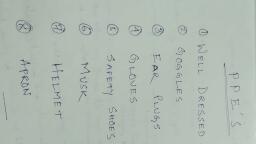 PPE'S
① WELL DRESSED
② GOGGLES
③ EAR PLUGS
④ GLOVES
⑤ SAFETY SHOES
⑥ MUSK
⑦ HELMET
⑧ APRON